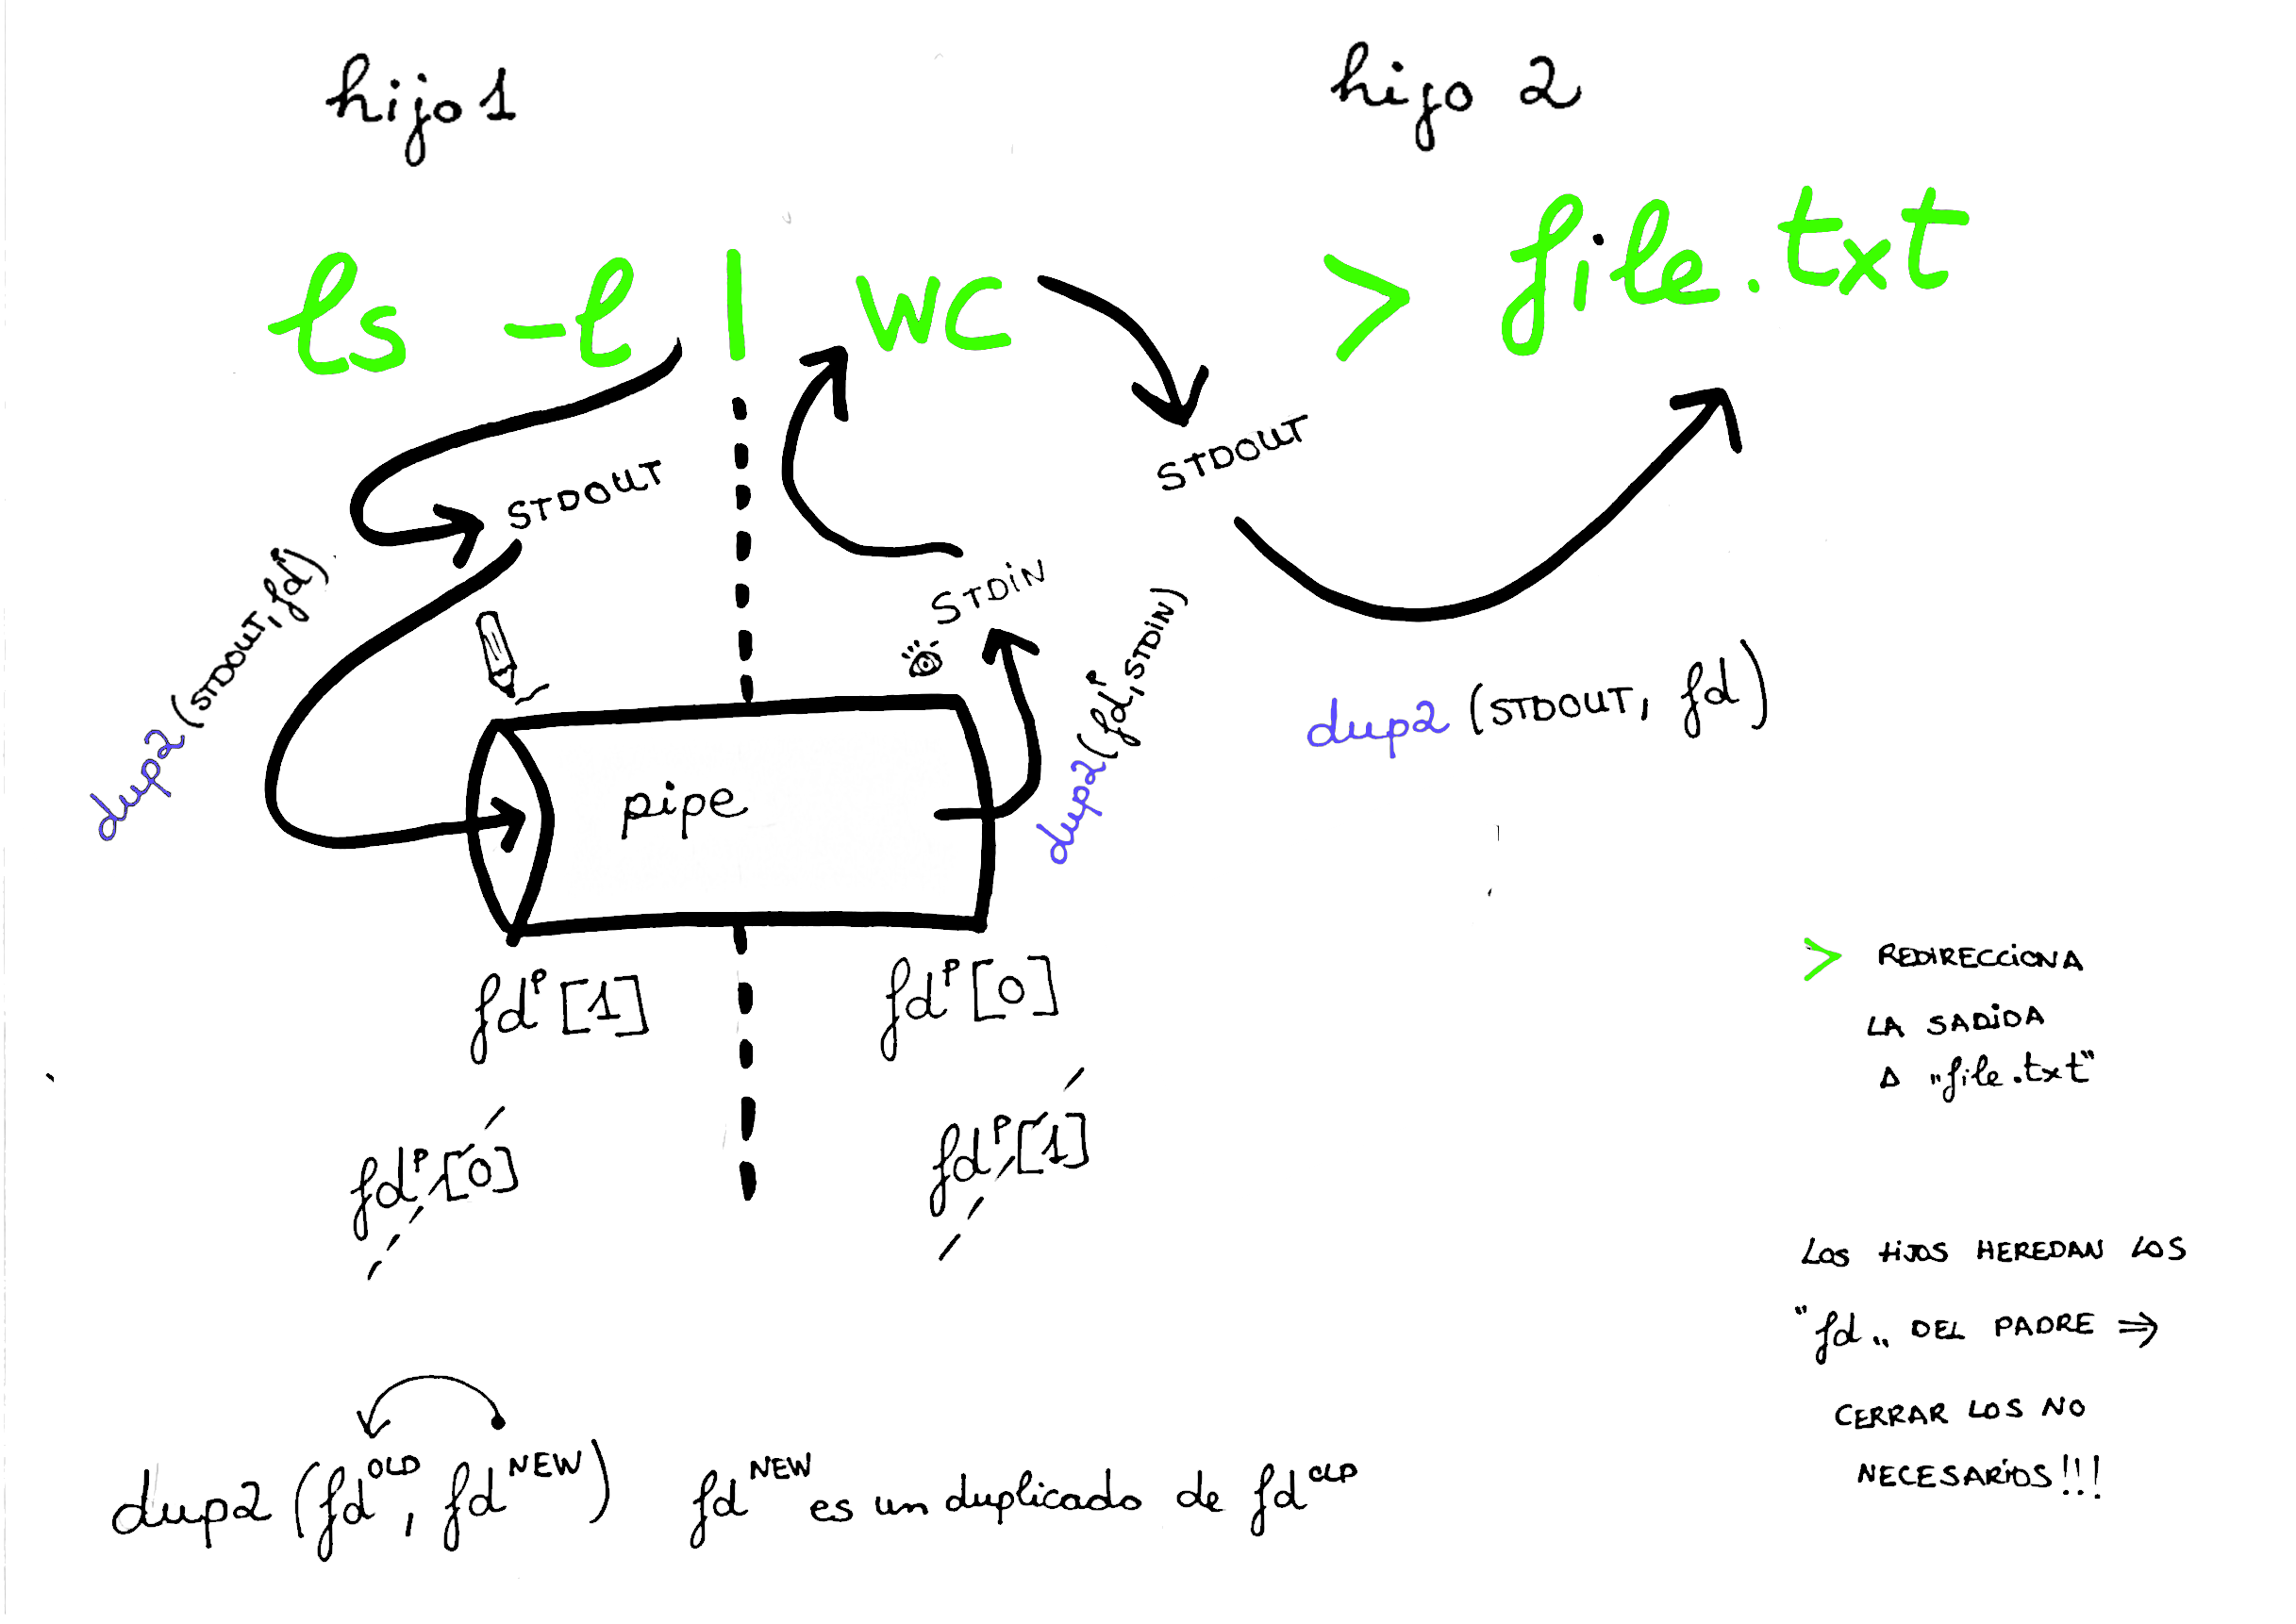 hijo 1
hijo 2
ls -l | wc > file.txt
STDOUT
STDOUT
STDIN
dup2 (STDOUT, fdᴾ)
dup2 (fdᴾ, STDIN)
dup2 (STDOUT, fd)
pipe
fdᴾ [1]
fdᴾ [0]
fdᴾ [0]
fdᴾ [1]
> REDIRECCIONA
LA SADIDA
A "file.txt"
LOS HIJOS HEREDAN LOS
"fd" DEL PADRE ⇒
CERRAR LOS NO
NECESARIOS!!!
dup2 (fd^OLD, fd^NEW) fd^NEW es un duplicado de fd^OLD